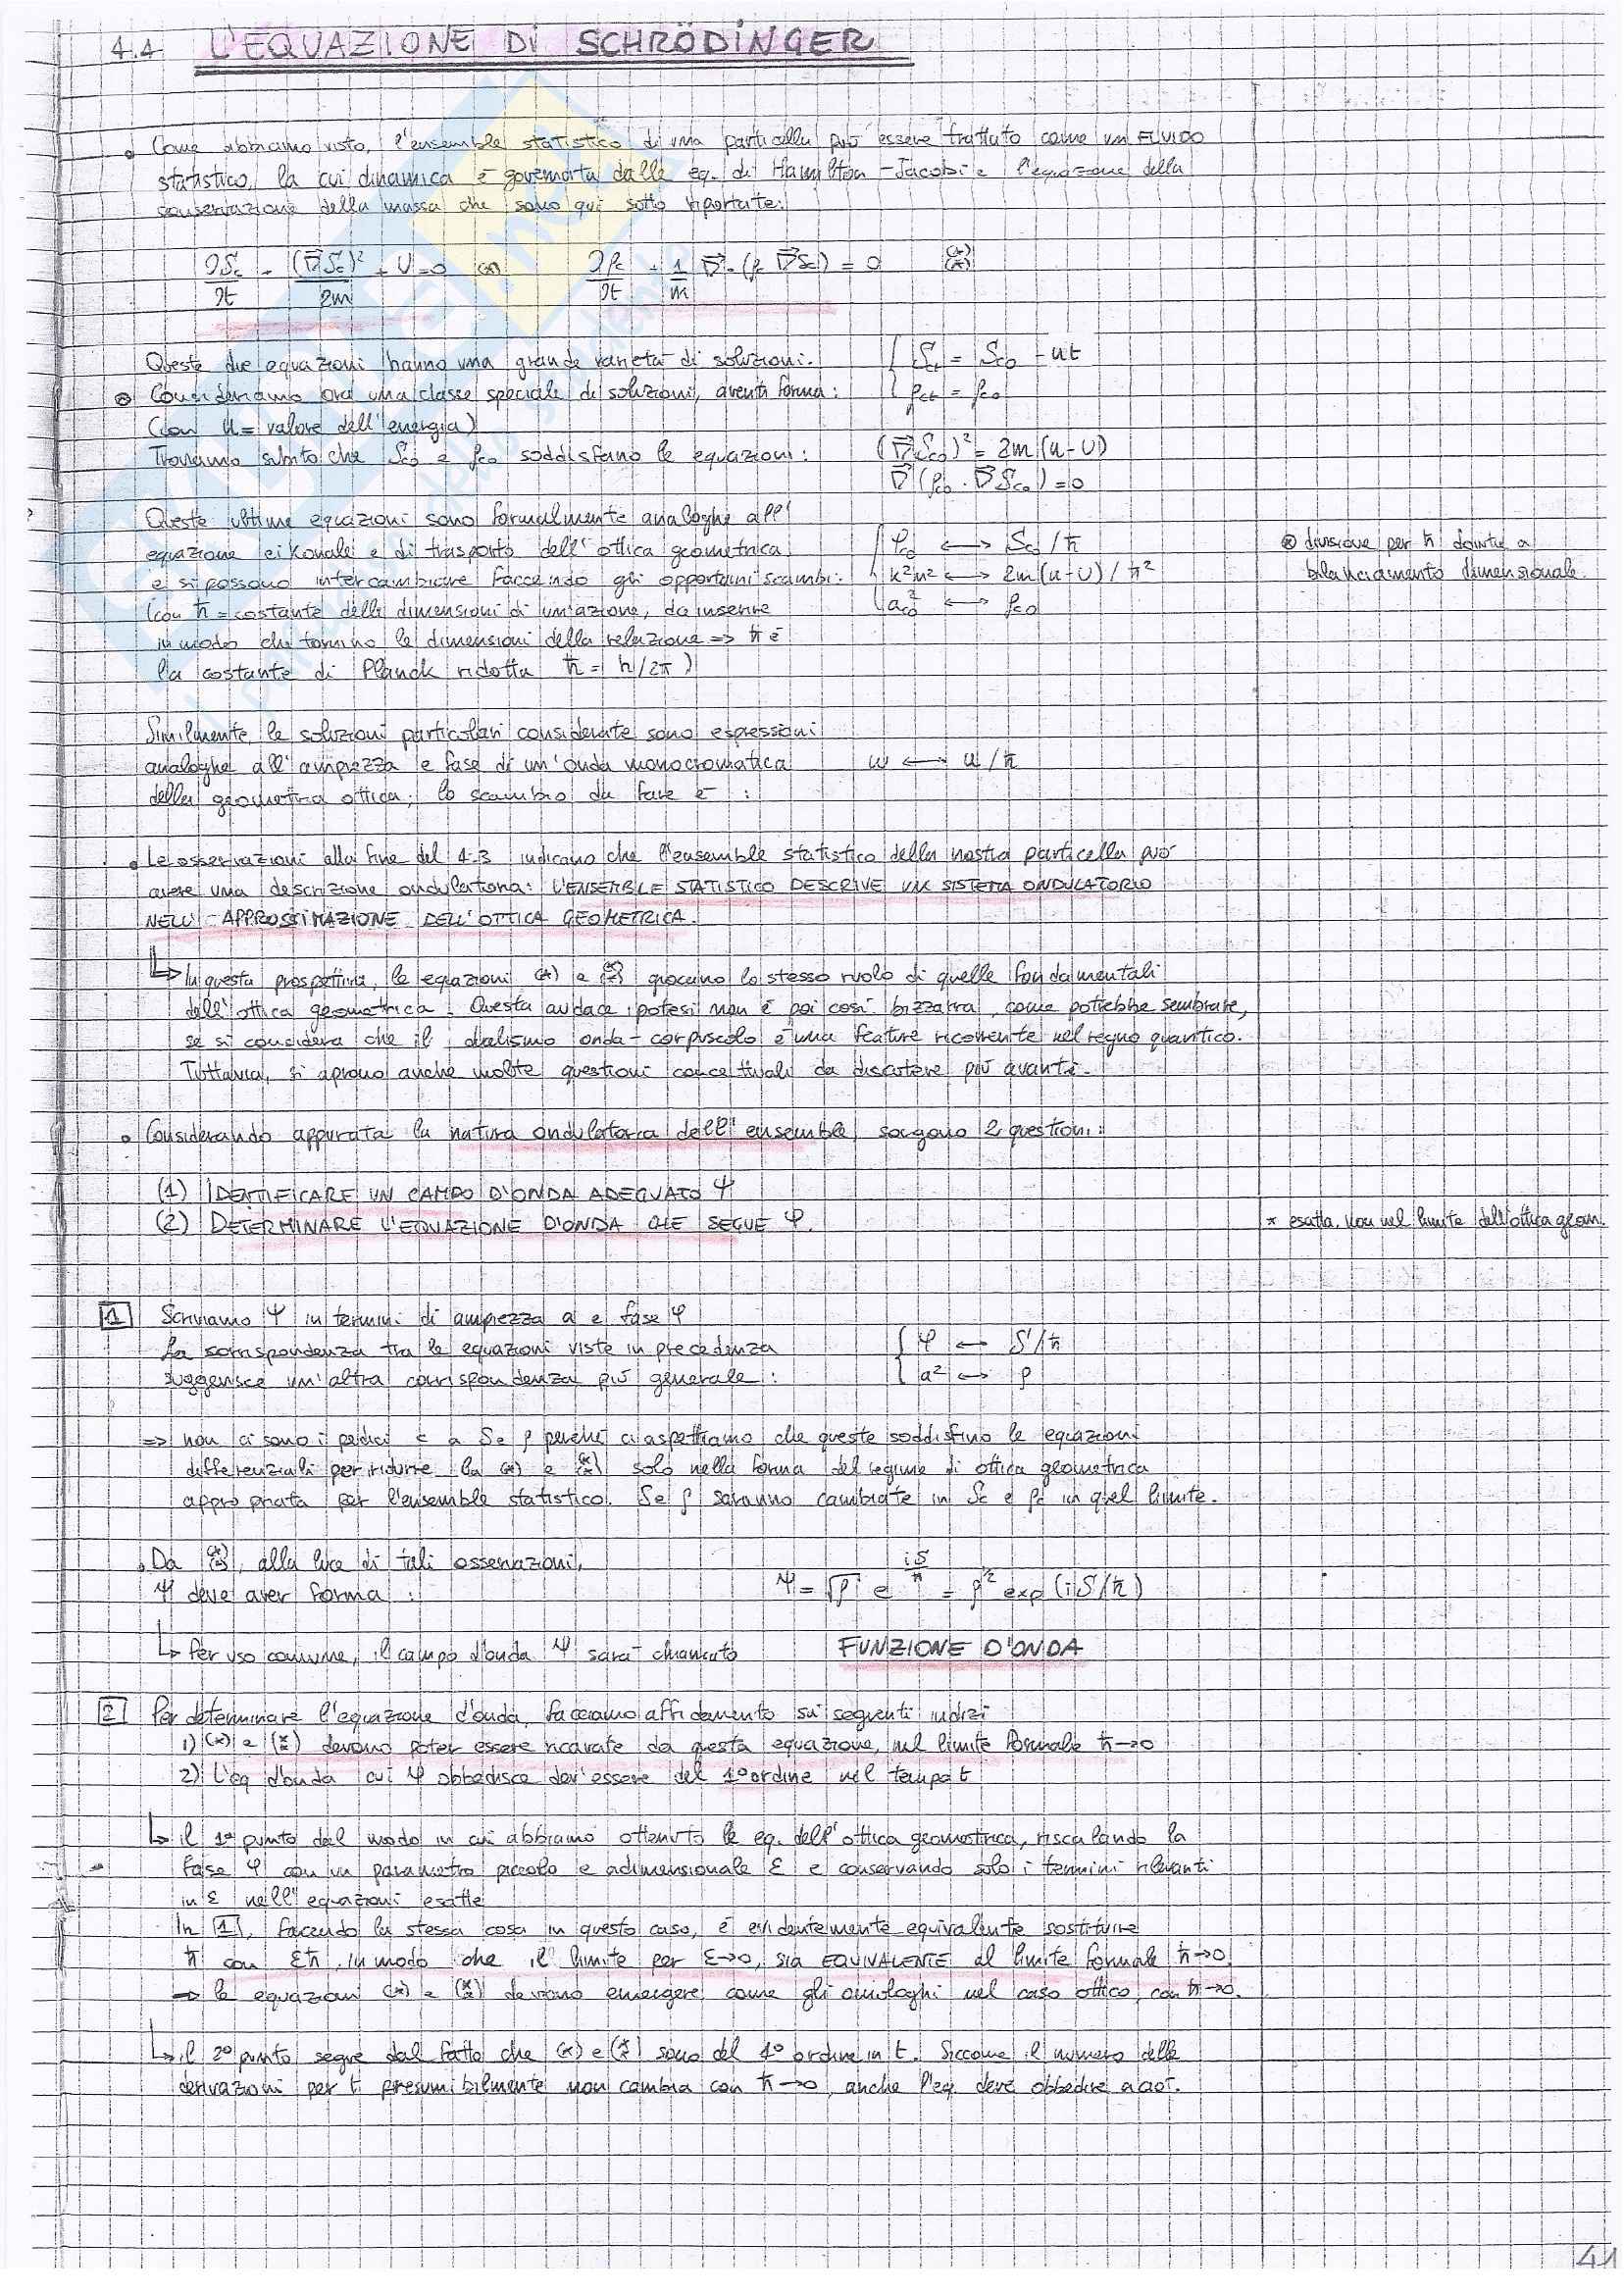 4.4 L'EQUAZIONE DI SCHRÖDINGER
• Come abbiamo visto, l'ensemble statistico di una particella può essere trattato come un FLUIDO
statistico, la cui dinamica è governata dalle eq. di Hamilton-Jacobi e l'equazione della
conservazione della massa che sono qui sotto riportate:
∂Sc/∂t + (∇⃗Sc)²/2m + U = 0 (*) ∂ρc/∂t + 1/m ∇⃗·(ρc ∇⃗Sc) = 0 (**)
Queste due equazioni hanno una grande varietà di soluzioni. { Sc = Sc0 - ut
⊗ Consideriamo ora una classe speciale di soluzioni, aventi forma: { ρct = ρc0
(con u = valore dell'energia)
Troviamo subito che Sc0 e ρc0 soddisfano le equazioni: (∇⃗Sc0)² = 2m(u-U)
∇⃗(ρc0·∇⃗Sc0) = 0
Queste ultime equazioni sono formalmente analoghe all'
equazione eikonale e di trasporto dell'ottica geometrica { φc0 ⟷ Sc0/ħ ⊗ divisione per ħ dovuta a
e si possono intercambiare facendo gli opportuni scambi: { k²n² ⟷ 2m(u-U)/ħ² bilanciamento dimensionale.
(con ħ = costante delle dimensioni di un'azione, da inserire { ac0² ⟷ ρc0
in modo che tornino le dimensioni della relazione => ħ è
la costante di Planck ridotta ħ = h/2π)
Similmente, le soluzioni particolari considerate sono espressioni
analoghe all'ampiezza e fase di un'onda monocromatica ω ⟷ u/ħ
della geometria ottica; lo scambio da fare è :
• Le osservazioni alla fine del 4.3 indicano che l'ensemble statistico della nostra particella può
avere una descrizione ondulatoria: L'ENSEMBLE STATISTICO DESCRIVE UN SISTEMA ONDULATORIO
NELL'APPROSSIMAZIONE DELL'OTTICA GEOMETRICA.
↳ In questa prospettiva, le equazioni (*) e (**) giocano lo stesso ruolo di quelle fondamentali
dell'ottica geometrica. Questa audace ipotesi non è poi così bizzarra, come potrebbe sembrare,
se si considera che il dualismo onda-corpuscolo è una feature ricorrente nel regno quantico.
Tuttavia, si aprono anche molte questioni concettuali da discutere più avanti.
• Considerando appurata la natura ondulatoria dell'ensemble, sorgono 2 questioni:
(1) IDENTIFICARE UN CAMPO D'ONDA ADEGUATO Ψ
(2) DETERMINARE L'EQUAZIONE D'ONDA CHE SEGUE Ψ. * esatta, non nel limite dell'ottica geom.
1 Scriviamo Ψ in termini di ampiezza a e fase φ
La corrispondenza tra le equazioni viste in precedenza { φ ⟷ S/ħ
suggerisce un'altra corrispondenza più generale: { a² ⟷ ρ
=> non ci sono i pedici c a S e ρ perché ci aspettiamo che queste soddisfino le equazioni
differenziali per ridurre la (*) e (**) solo nella forma del regime di ottica geometrica
appropriata per l'ensemble statistico. S e ρ saranno cambiate in Sc e ρc in quel limite.
• Da (**), alla luce di tali osservazioni,
Ψ deve aver forma : Ψ = √ρ e^(iS/ħ) = ρ^½ exp(iS/ħ)
↳ Per uso comune, il campo d'onda Ψ sarà chiamato FUNZIONE D'ONDA
2 Per determinare l'equazione d'onda, facciamo affidamento su seguenti indizi
1) (*) e (**) devono poter essere ricavate da questa equazione, nel limite formale ħ→0
2) L'eq d'onda cui Ψ obbedisce dev'essere del 1° ordine nel tempo t
↳ il 1° punto dal modo in cui abbiamo ottenuto le eq. dell'ottica geometrica, riscalando la
fase φ con un parametro piccolo e adimensionale ε e conservando solo i termini rilevanti
in ε nell'equazioni esatte
In 1, facendo la stessa cosa in questo caso, è evidentemente equivalente sostituire
ħ con εħ, in modo che il limite per ε→0, sia EQUIVALENTE al limite formale ħ→0.
→ le equazioni (*) e (**) devono emergere come gli analoghi nel caso ottico, con ħ→0.
↳ il 2° punto segue dal fatto che (*) e (**) sono del 1° ordine in t. Siccome il numero delle
derivazioni per t presumibilmente non cambia con ħ→0, anche l'eq. deve obbedire a ciò.
41